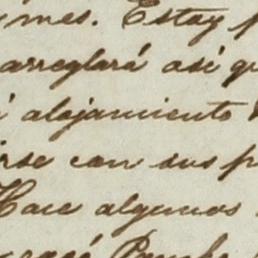 mes. Estoy
arreglará así q
alojamiento
irse con sus p
Hace algunos
Pancho